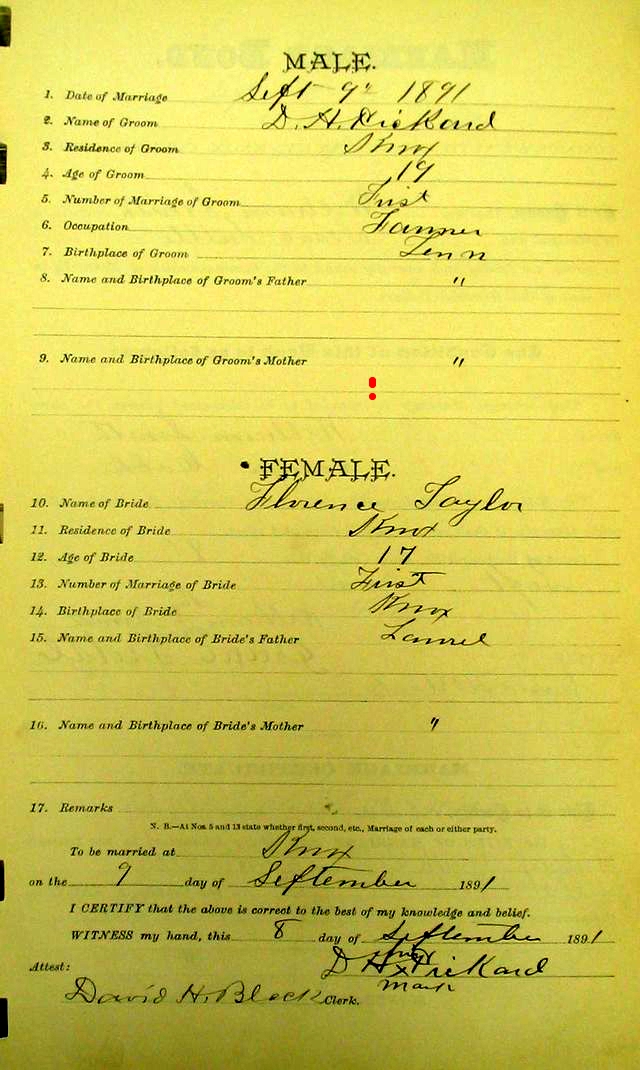 MALE.
1. Date of Marriage Sept 9" 1891
2. Name of Groom D. H. Pickard
3. Residence of Groom Knox
4. Age of Groom 19
5. Number of Marriage of Groom First
6. Occupation Farmer
7. Birthplace of Groom Tenn
8. Name and Birthplace of Groom's Father "
9. Name and Birthplace of Groom's Mother "
FEMALE.
10. Name of Bride Florence Taylor
11. Residence of Bride Knox
12. Age of Bride 17
13. Number of Marriage of Bride First
14. Birthplace of Bride Knox
15. Name and Birthplace of Bride's Father Laurel
16. Name and Birthplace of Bride's Mother "
17. Remarks
N. B.—At Nos. 5 and 13 state whether first, second, etc., Marriage of each or either party.
To be married at Knox
on the 9 day of September 1891
I CERTIFY that the above is correct to the best of my knowledge and belief.
WITNESS my hand, this 8 day of September 1891
his
D H x Pickard
mark
Attest:
David H. Black Clerk.